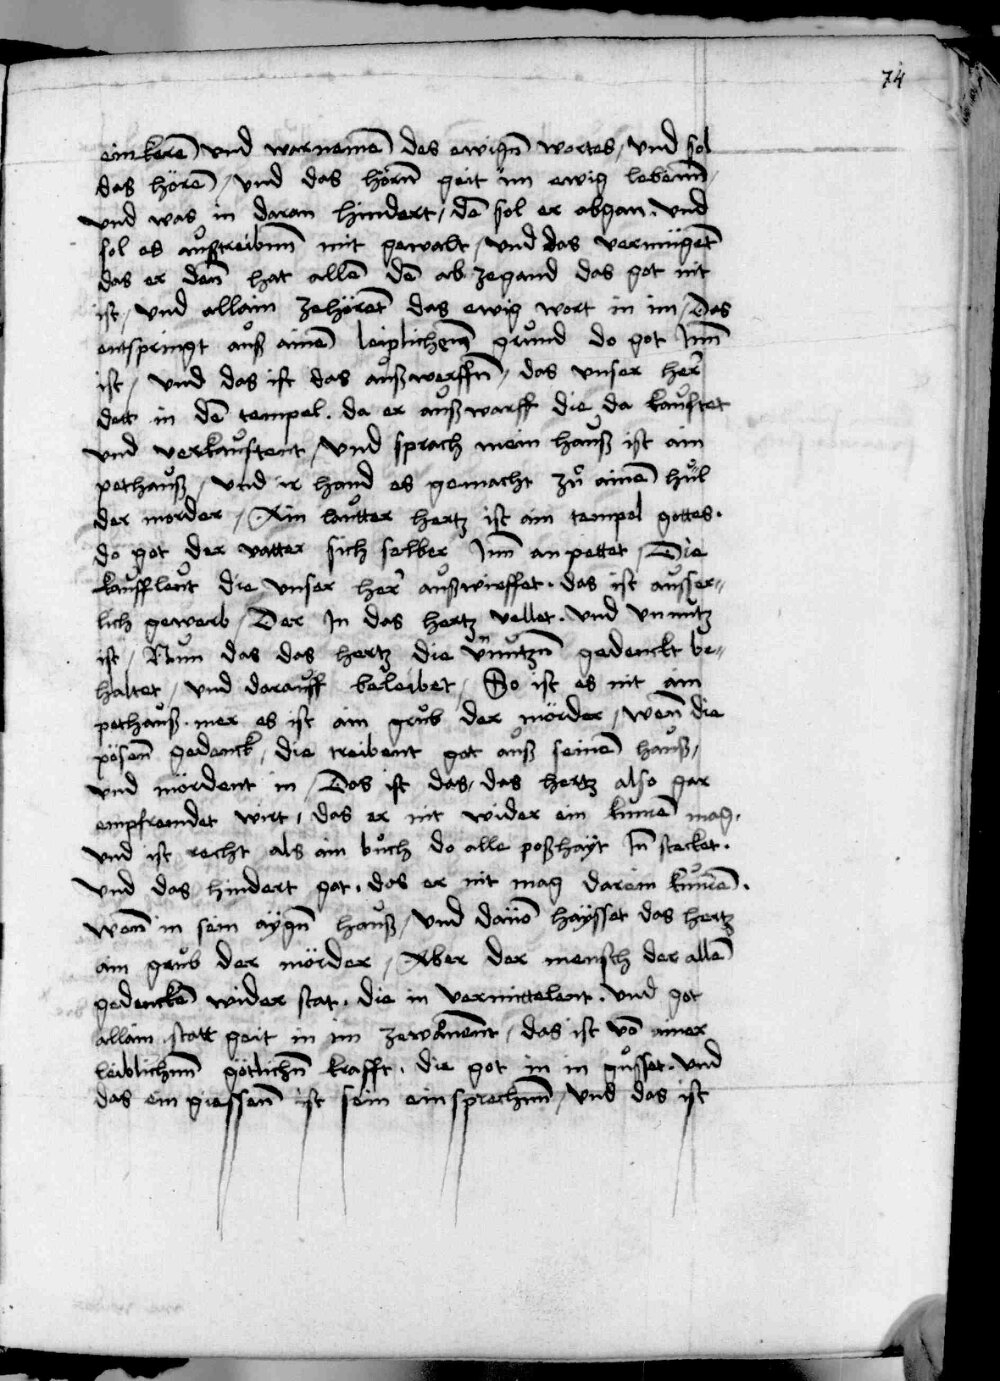 74
einkerē und warnemē des ewign̄ wortes / und sol
das hörē / und das hörn̄ geit im ewig lebenn̄ /
und was in daran hindert / dē sol er abgan. und
sol es außtreibnn̄ mit gewalt / und das vermügēt
das er den̄ hat allē dē ab zegand das got nit
ist / und allain zehörēt das ewig wort in im / Das
entspringt auß ainē leiplichenn̄ grund do got Jnn̄
ist / und das ist das außwerffn̄ / das unser her
dett in dē tempel. da er außwarff die da kauftet
und verkauftent / und sprach mein hauß ist ain
pethauß / und ir hand es gemacht zů ainē hül
der morder / Ain lautter hertz ist ain tempel gottes.
do got der vatter sich selber Jnn̄ an pettet / Die
kauffleut die unser her außwirffet. das ist ausser„
lich gewerb / Der Jn das hertz vellet. und unnutz
ist / Nun das das hertz die ūnutzn̄ gedenckt be„
haltet / und darauff beleibet / So ist es nit ain
pethauß. mer es ist ain grůb der mörder / wen̄ die
pösen̄ gedenck / die treibent got auß seinē hauß /
und mördent in / Das ist das / das hertz also gar
empfremdet wirt / das er nit wider ein kumē mag.
und ist recht als ain bůch do alle poßhayt Jn̄ stecket.
und das hindert got. das er nit mag darein kumē.
wen̄ in sein aygn̄ hauß / und dauō haysset das hertz
ain grůb der mörder / Aber der mensch der allē
gedenckē wider stat. die in vermittelent. und got
allain statt geit in im zewonēnt / das ist vō ainer
leiblichnn̄ götlichn̄ krafft. die got in in gůsset. und
das ein giessen̄ ist sein einsprechnn̄ / und das ist